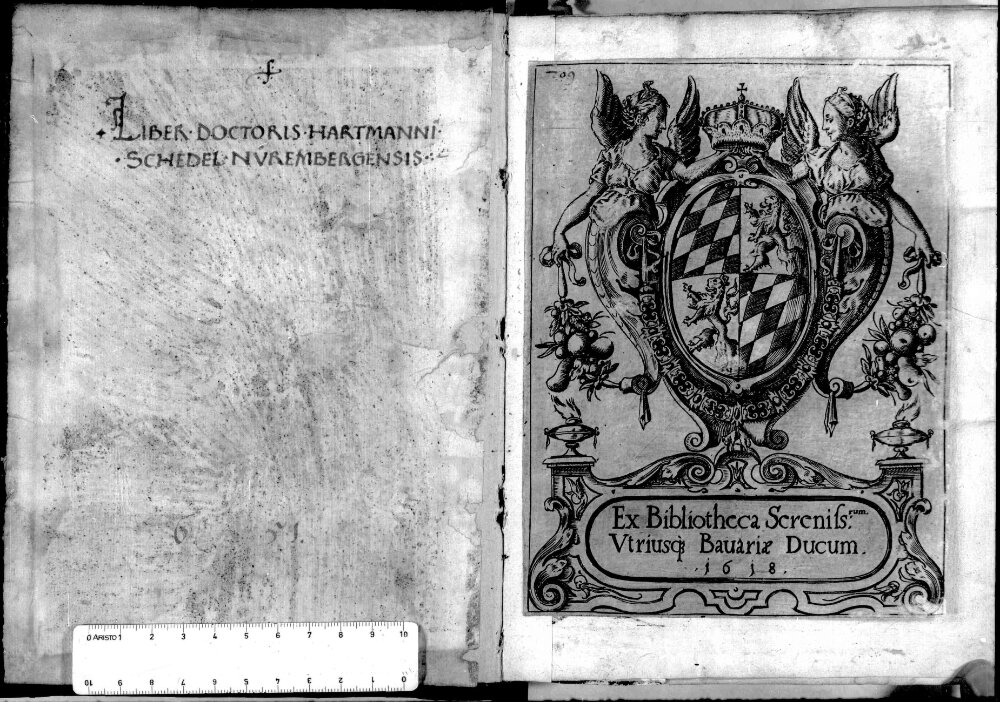 LIBER·DOCTORIS·HARTMANNI·
·SCHEDEL·NVREMBERGENSIS·
Ex Bibliotheca Sereniſs:rum.
Vtriusq₃ Bauariæ Ducum.
·1618.
0 ARISTO 1 2 3 4 5 6 7 8 9 10
10 9 8 7 6 5 4 3 2 1 0